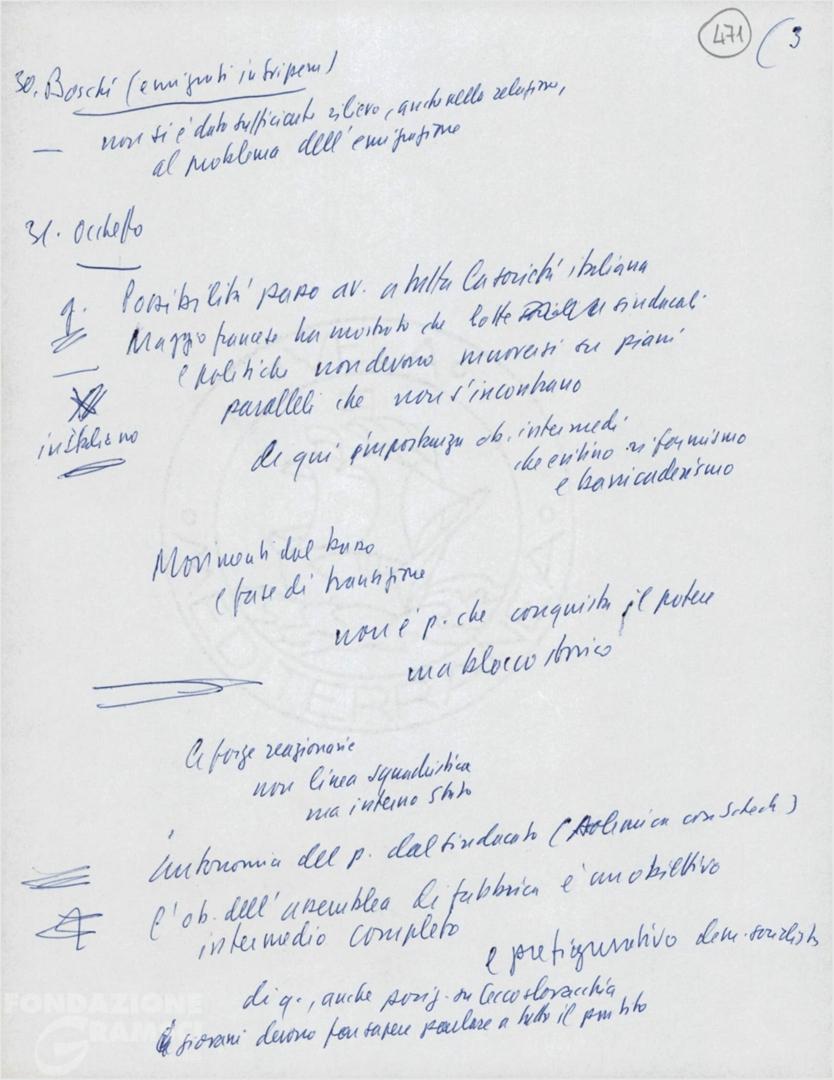 471 (3
30. Boschi (emigrati in Svizzera)
— non si è dato sufficiente rilievo, anche nella relazione,
al problema dell'emigrazione
31. Occhetto
q. Possibilità passo av. a tutta la società italiana
Maggio francese ha mostrato che lotte sindacali
— e politiche non devono muoversi su piani
paralleli che non s'incontrano
in italiano
di qui importanza ob. intermedi
che evitino riformismo
e barricaderismo
Movimenti dal basso
e fase di transizione
non è p. che conquista il potere
ma blocco storico
Le forze reazionarie
non linea squadristica
ma interno Stato
Autonomia del p. dal sindacato (Polemica con Scheda)
L'ob. dell'assemblea di fabbrica è un obiettivo
intermedio completo
e prefigurativo dem. socialista
di q., anche posiz. su Cecoslovacchia
giovani devono far sapere parlare a tutto il partito
FONDAZIONE
GRAMSCI